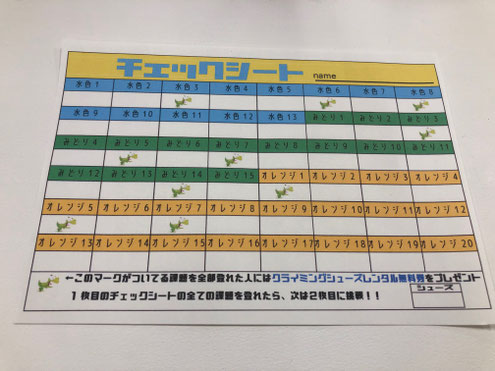 チェックシート name
水色1 水色2 水色3 水色4 水色5 水色6 水色7 水色8
水色9 水色10 水色11 水色12 水色13 みどり1 みどり2 みどり3
みどり4 みどり5 みどり6 みどり7 みどり8 みどり9 みどり10 みどり11
みどり12 みどり13 みどり14 みどり15 オレンジ1 オレンジ2 オレンジ3 オレンジ4
オレンジ5 オレンジ6 オレンジ7 オレンジ8 オレンジ9 オレンジ10 オレンジ11 オレンジ12
オレンジ13 オレンジ14 オレンジ15 オレンジ16 オレンジ17 オレンジ18 オレンジ19 オレンジ20
←このマークがついてる課題を全部登れた人にはクライミングシューズレンタル無料券をプレゼント
1枚目のチェックシートの全ての課題を登れたら、次は2枚目に挑戦!!
シューズ